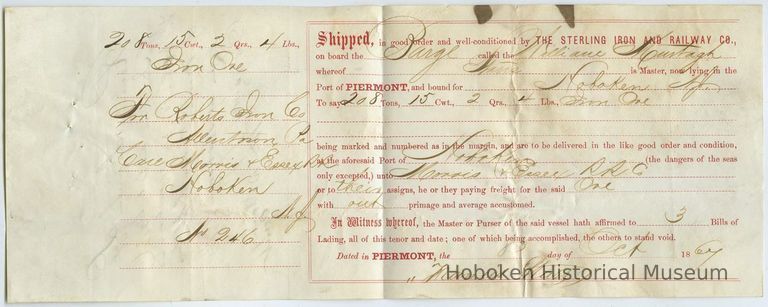 208 Tons, 15 Cwt., 2 Qrs., 4 Lbs.,
Iron Ore
For Roberts Iron Co
Allentown Pa
Care Morris & Essex RR
Hoboken
N.J.
No 246
Shipped, in good order and well-conditioned by THE STERLING IRON AND RAILWAY CO.,
on board the Barge called the William Murtagh
whereof is Master, now lying in the
Port of PIERMONT, and bound for Hoboken N.J.
To say 208 Tons, 15 Cwt., 2 Qrs., 4 Lbs., Iron Ore
being marked and numbered as in the margin, and are to be delivered in the like good order and condition,
at the aforesaid Port of Hoboken (the dangers of the seas
only excepted,) unto Morris & Essex R.R. Co
or to their assigns, he or they paying freight for the said Ore
with out primage and average accustomed.
In Witness whereof, the Master or Purser of the said vessel hath affirmed to 3 Bills of
Lading, all of this tenor and date; one of which being accomplished, the others to stand void.
Dated in PIERMONT, the day of Oct 186
Hoboken Historical Museum